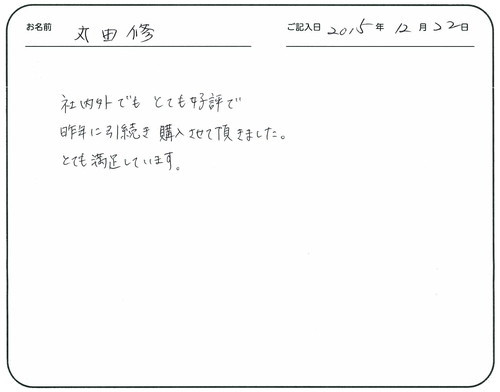 お名前 丸田修 ご記入日 2015年 12月 22日
社内外でも とても好評で
昨年に引続き 購入させて頂きました。
とても満足しています。